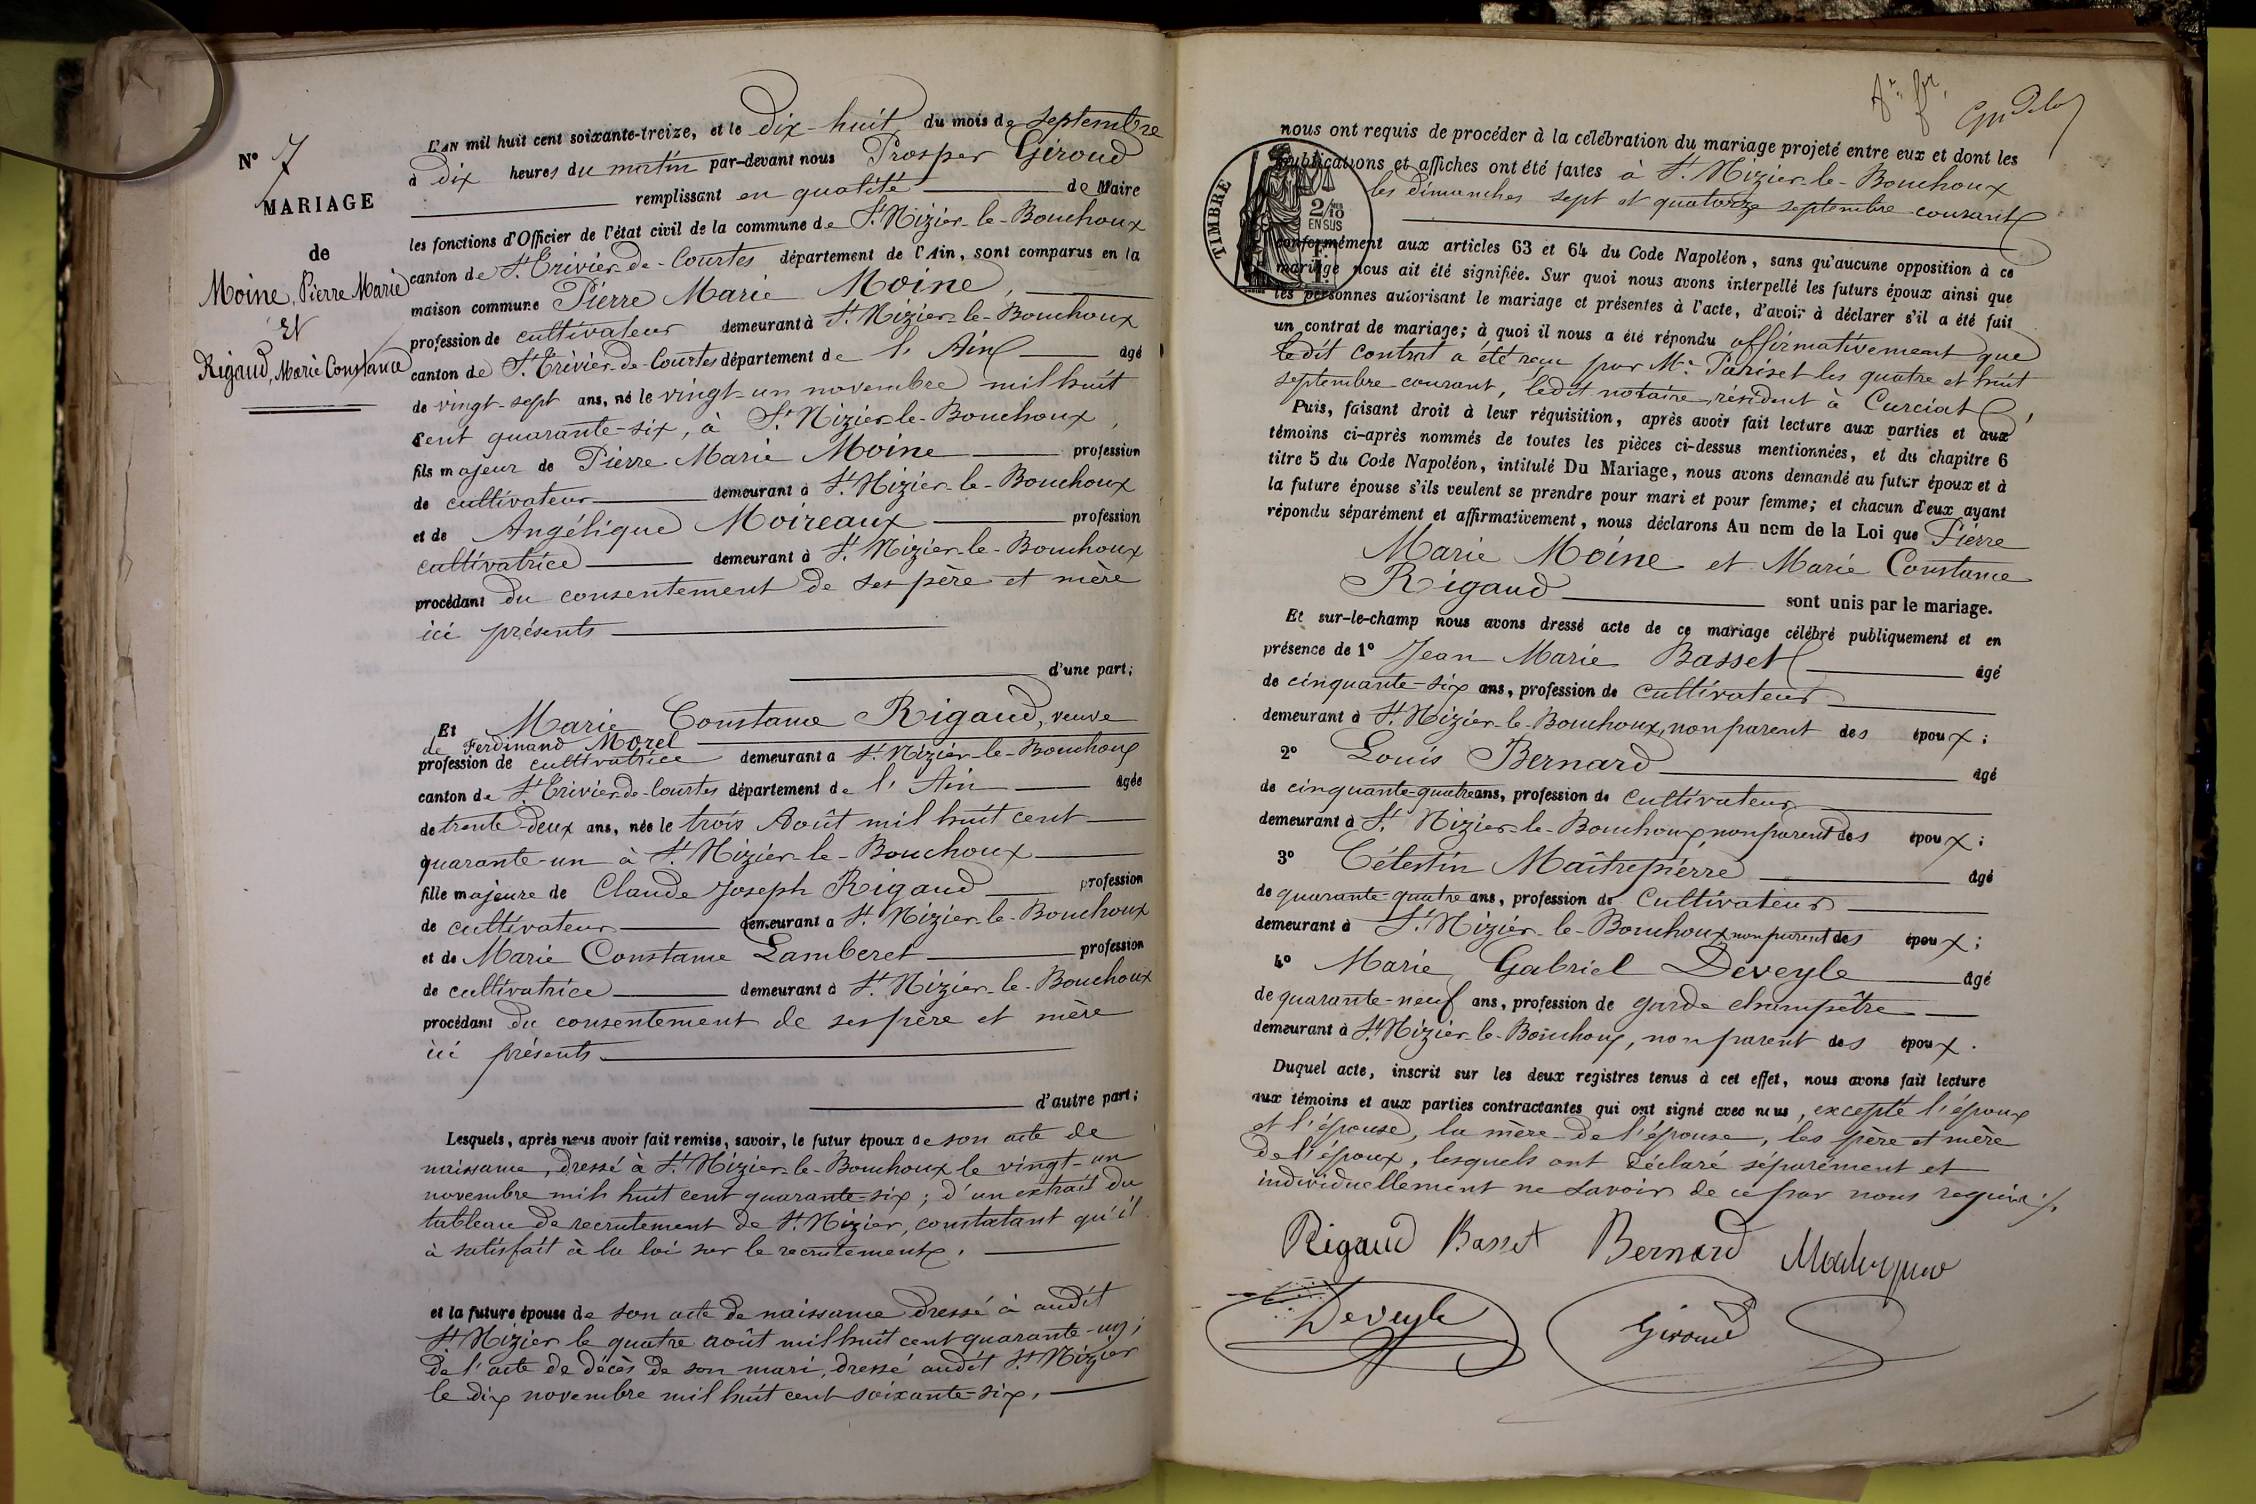 N° 7
MARIAGE
de
Moine, Pierre Marie
Et
Rigaud, Marie Constance
L'AN mil huit cent soixante-treize, et le dix-huit du mois de Septembre
à dix heures du matin par-devant nous Prosper Giroud
remplissant en qualité de Maire
les fonctions d'Officier de l'état civil de la commune de St Nizier-le-Bouchoux
canton de St Trivier-de-Courtes département de l'Ain, sont comparus en la
maison commune Pierre Marie Moine,
profession de cultivateur demeurant à St Nizier-le-Bouchoux
canton de St Trivier-de-Courtes département de l'Ain âgé
de vingt-sept ans, né le vingt-un novembre mil huit
cent quarante-six, à St Nizier-le-Bouchoux,
fils majeur de Pierre Marie Moine profession
de cultivateur demeurant à St Nizier-le-Bouchoux
et de Angélique Moireaux profession
cultivatrice demeurant à St Nizier-le-Bouchoux
procédant du consentement de ses père et mère
ici présents
d'une part;
Et Marie Constance Rigaud, veuve
de Ferdinand Morel
profession de cultivatrice demeurant à St Nizier-le-Bouchoux
canton de St Trivier-de-Courtes département de l'Ain âgée
de trente-deux ans, née le trois Août mil huit cent
quarante-un à St Nizier-le-Bouchoux
fille majeure de Claude Joseph Rigaud profession
de cultivateur demeurant à St Nizier-le-Bouchoux
et de Marie Constance Lamberet profession
de cultivatrice demeurant à St Nizier-le-Bouchoux
procédant du consentement de ses père et mère
ici présents
d'autre part;
Lesquels, après nous avoir fait remise, savoir, le futur époux de son acte de
naissance, dressé à St Nizier-le-Bouchoux le vingt-un
novembre mil huit cent quarante-six; d'un extrait du
tableau de recrutement de St Nizier, constatant qu'il
à satisfait à la loi sur le recrutement.
et la future épouse de son acte de naissance dressé à audit
St Nizier le quatre août mil huit cent quarante-un;
de l'acte de décès de son mari, dressé audit St Nizier
le dix novembre mil huit cent soixante-six.
nous ont requis de procéder à la célébration du mariage projeté entre eux et dont les
TIMBRE
2/10 EN SUS
publications et affiches ont été faites à St Nizier-le-Bouchoux
les dimanches sept et quatorze septembre courant
conformément aux articles 63 et 64 du Code Napoléon, sans qu'aucune opposition à ce
mariage nous ait été signifiée. Sur quoi nous avons interpellé les futurs époux ainsi que
les personnes autorisant le mariage et présentes à l'acte, d'avoir à déclarer s'il a été fait
un contrat de mariage; à quoi il nous a été répondu affirmativement que
ledit contrat a été reçu par Me Pariset les quatre et huit
septembre courant, ledit notaire, résident à Curciat,
Puis, faisant droit à leur réquisition, après avoir fait lecture aux parties et aux
témoins ci-après nommés de toutes les pièces ci-dessus mentionnées, et du chapitre 6
titre 5 du Code Napoléon, intitulé Du Mariage, nous avons demandé au futur époux et à
la future épouse s'ils veulent se prendre pour mari et pour femme; et chacun d'eux ayant
répondu séparément et affirmativement, nous déclarons Au nom de la Loi que Pierre
Marie Moine et Marie Constance
Rigaud sont unis par le mariage.
Et sur-le-champ nous avons dressé acte de ce mariage célébré publiquement et en
présence de 1° Jean Marie Basset âgé
de cinquante-six ans, profession de cultivateur
demeurant à St Nizier-le-Bouchoux, non parent des époux;
2° Louis Bernard âgé
de cinquante-quatre ans, profession de cultivateur
demeurant à St Nizier-le-Bouchoux, non parent des époux;
3° Célestin Maîtrepierre âgé
de quarante-quatre ans, profession de Cultivateur
demeurant à St Nizier-le-Bouchoux, non parent des époux;
4° Marie Gabriel Deveyle âgé
de quarante-neuf ans, profession de garde champêtre
demeurant à St Nizier-le-Bouchoux, non parent des époux.
Duquel acte, inscrit sur les deux registres tenus à cet effet, nous avons fait lecture
aux témoins et aux parties contractantes qui ont signé avec nous, excepté l'époux
et l'épouse, la mère de l'épouse, les père et mère
de l'époux, lesquels ont déclaré séparément et
individuellement ne savoir de ce par nous requis.
Rigaud Basset Bernard
Deveyle Giroud